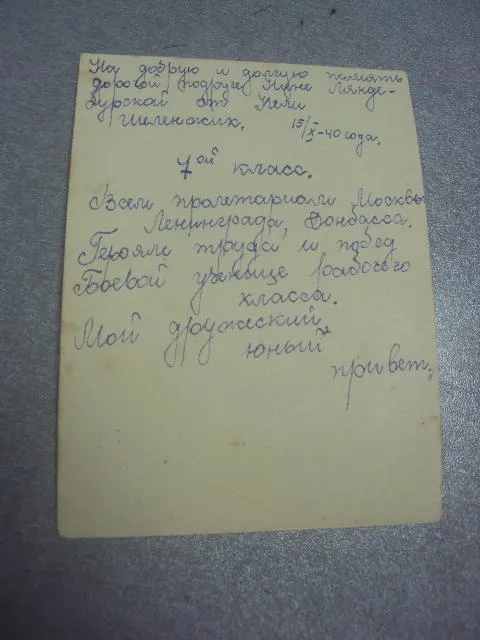 На добрую и долгую память
дорогой подруге Нине Ланде-
бурской от Нели
Шеленжик. 15/X-40 года.
7ой класс.
Всем пролетариям Москвы
Ленинграда, Донбасса.
Героям труда и побед
Боевой ученице рабочего
класса.
Мой дружеский
юный
привет.